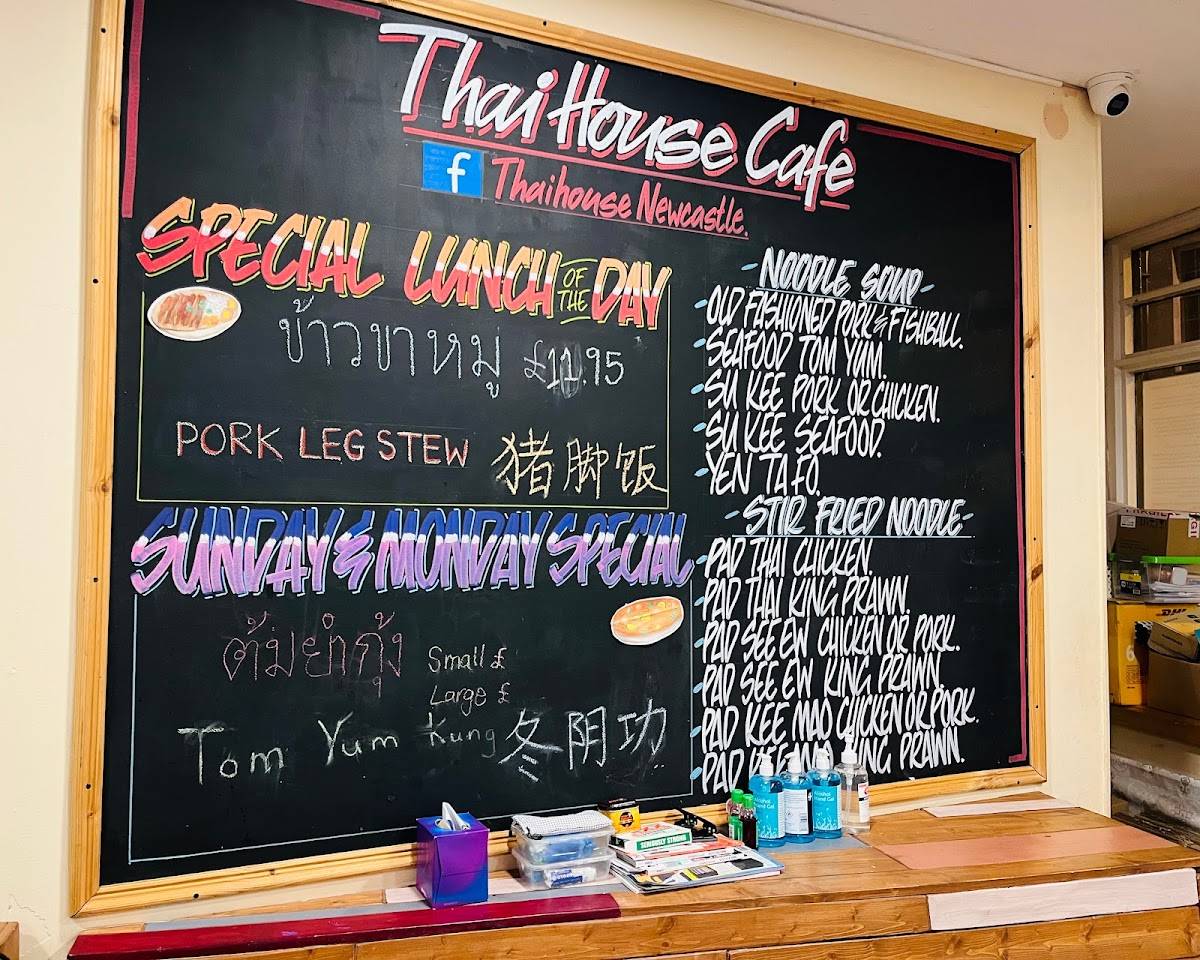 Thai House Cafe
f Thaihouse Newcastle.
SPECIAL LUNCH OF THE DAY
ข้าวขาหมู £11.95
PORK LEG STEW 猪脚饭
SUNDAY & MONDAY SPECIAL
ต้มยำกุ้ง
Small £
Large £
Tom Yum Kung 冬阴功
- NOODLE SOUP -
- OLD FASHIONED PORK & FISHBALL.
- SEAFOOD TOM YUM.
- SU KEE PORK OR CHICKEN.
- SU KEE SEAFOOD.
- YEN TA FO.
- STIR FRIED NOODLE -
- PAD THAI CHICKEN.
- PAD THAI KING PRAWN.
- PAD SEE EW CHICKEN OR PORK.
- PAD SEE EW KING PRAWN.
- PAD KEE MAO CHICKEN OR PORK.
- PAD KEE MAO KING PRAWN.
Alcohol
Hand Gel
Alcohol
Hand Gel
SERIOUSLY STRONG
DHL